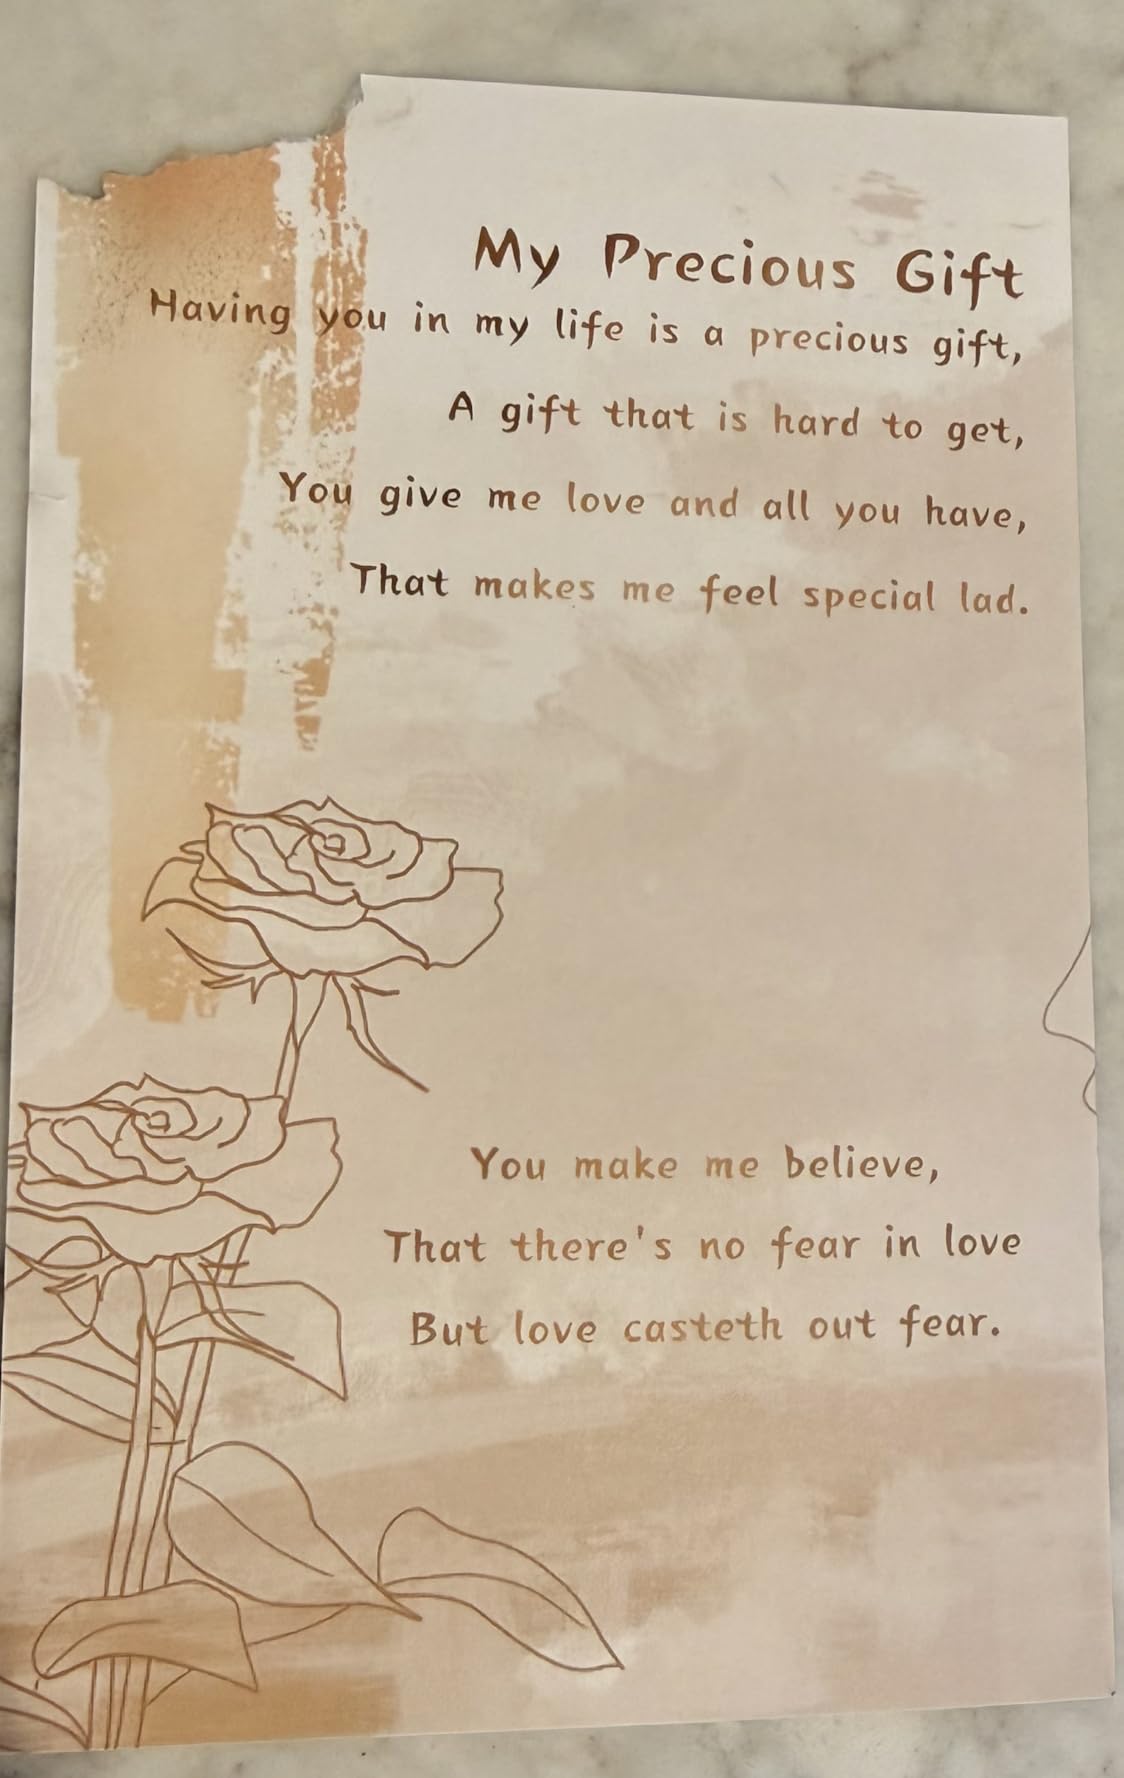 My Precious Gift
Having you in my life is a precious gift,
A gift that is hard to get,
You give me love and all you have,
That makes me feel special lad.
You make me believe,
That there's no fear in love
But love casteth out fear.